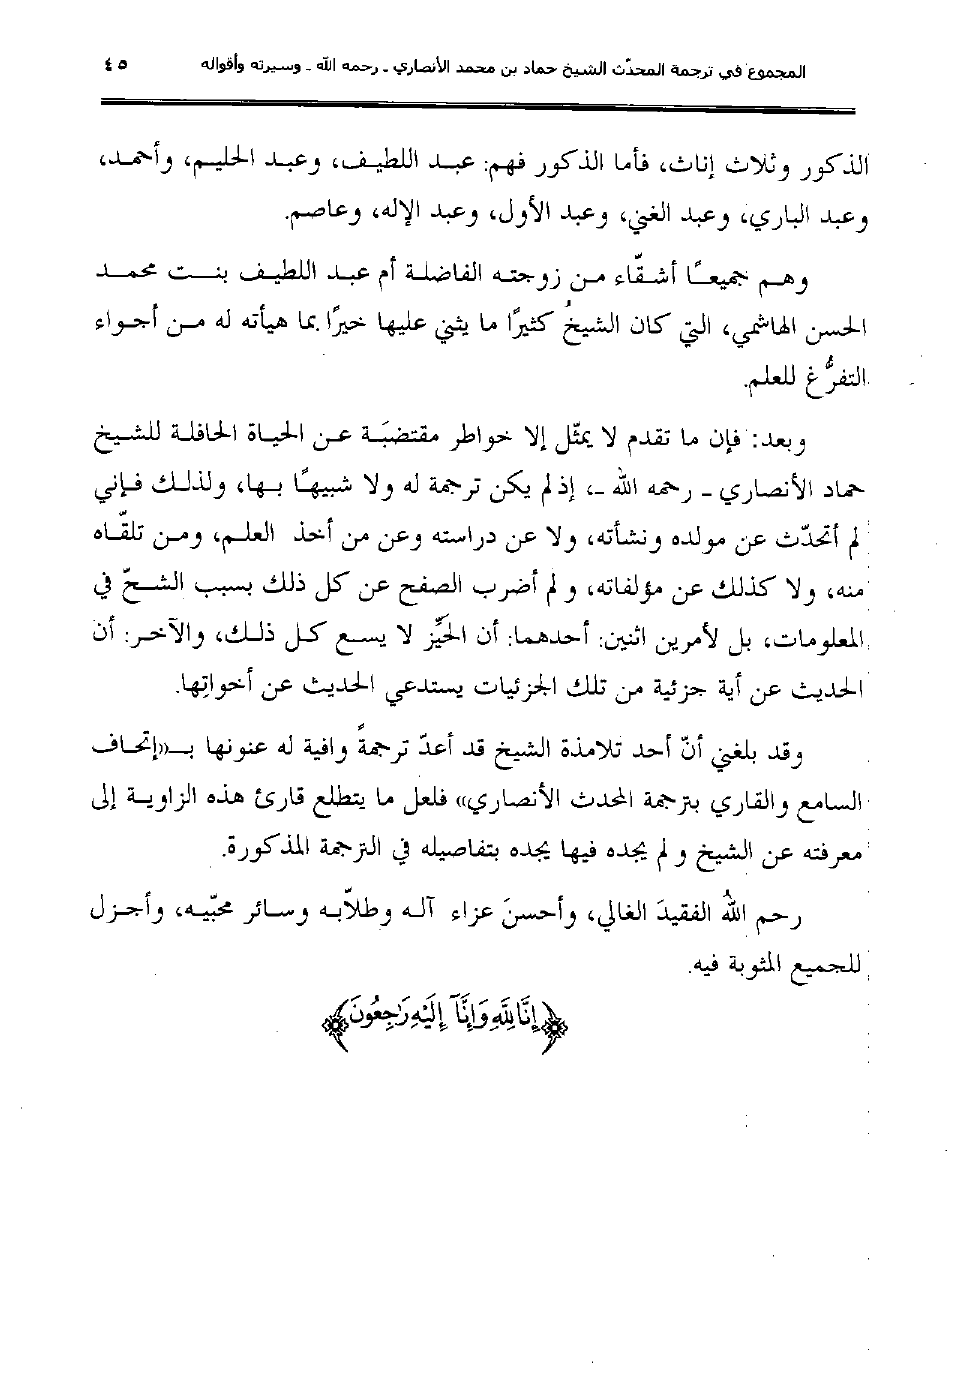 المجموع في ترجمة المحدّث الشيخ حماد بن محمد الأنصاري ـ رحمه الله ـ وسيرته وأقواله ٤٥
الذكور وثلاث إناث، فأما الذكور فهم: عبد اللطيف، وعبد الحليم، وأحمد،
وعبد الباري، وعبد الغني، وعبد الأول، وعبد الإله، وعاصم.
وهم جميعًا أشقّاء من زوجته الفاضلة أم عبد اللطيف بنت محمد
الحسن الهاشمي، التي كان الشيخُ كثيرًا ما يثني عليها خيرًا بما هيأته له من أجواء
التفرُّغ للعلم.
وبعد: فإن ما تقدم لا يمثّل إلا خواطر مقتضبَة عن الحياة الحافلة للشيخ
حماد الأنصاري ـ رحمه الله ـ، إذ لم يكن ترجمة له ولا شبيهًا بها، ولذلك فإني
لم أتحدّث عن مولده ونشأته، ولا عن دراسته وعن من أخذ العلم، ومن تلقّاه
منه، ولا كذلك عن مؤلفاته، ولم أضرب الصفح عن كل ذلك بسبب الشحّ في
المعلومات، بل لأمرين اثنين: أحدهما: أن الحيّز لا يسع كل ذلك، والآخر: أن
الحديث عن أية جزئية من تلك الجزئيات يستدعي الحديث عن أخواتِها.
وقد بلغني أنّ أحد تلامذة الشيخ قد أعدّ ترجمةً وافية له عنونها بـ«إتحاف
السامع والقاري بترجمة المحدث الأنصاري» فلعل ما يتطلع قارئ هذه الزاوية إلى
معرفته عن الشيخ ولم يجده فيها يجده بتفاصيله في الترجمة المذكورة.
رحم اللهُ الفقيدَ الغالي، وأحسنَ عزاء آله وطلاّبه وسائر محبّيه، وأجزل
للجميع المثوبة فيه.
﴿إِنَّا لِلَّهِ وَإِنَّآ إِلَيْهِ رَٰجِعُونَ﴾